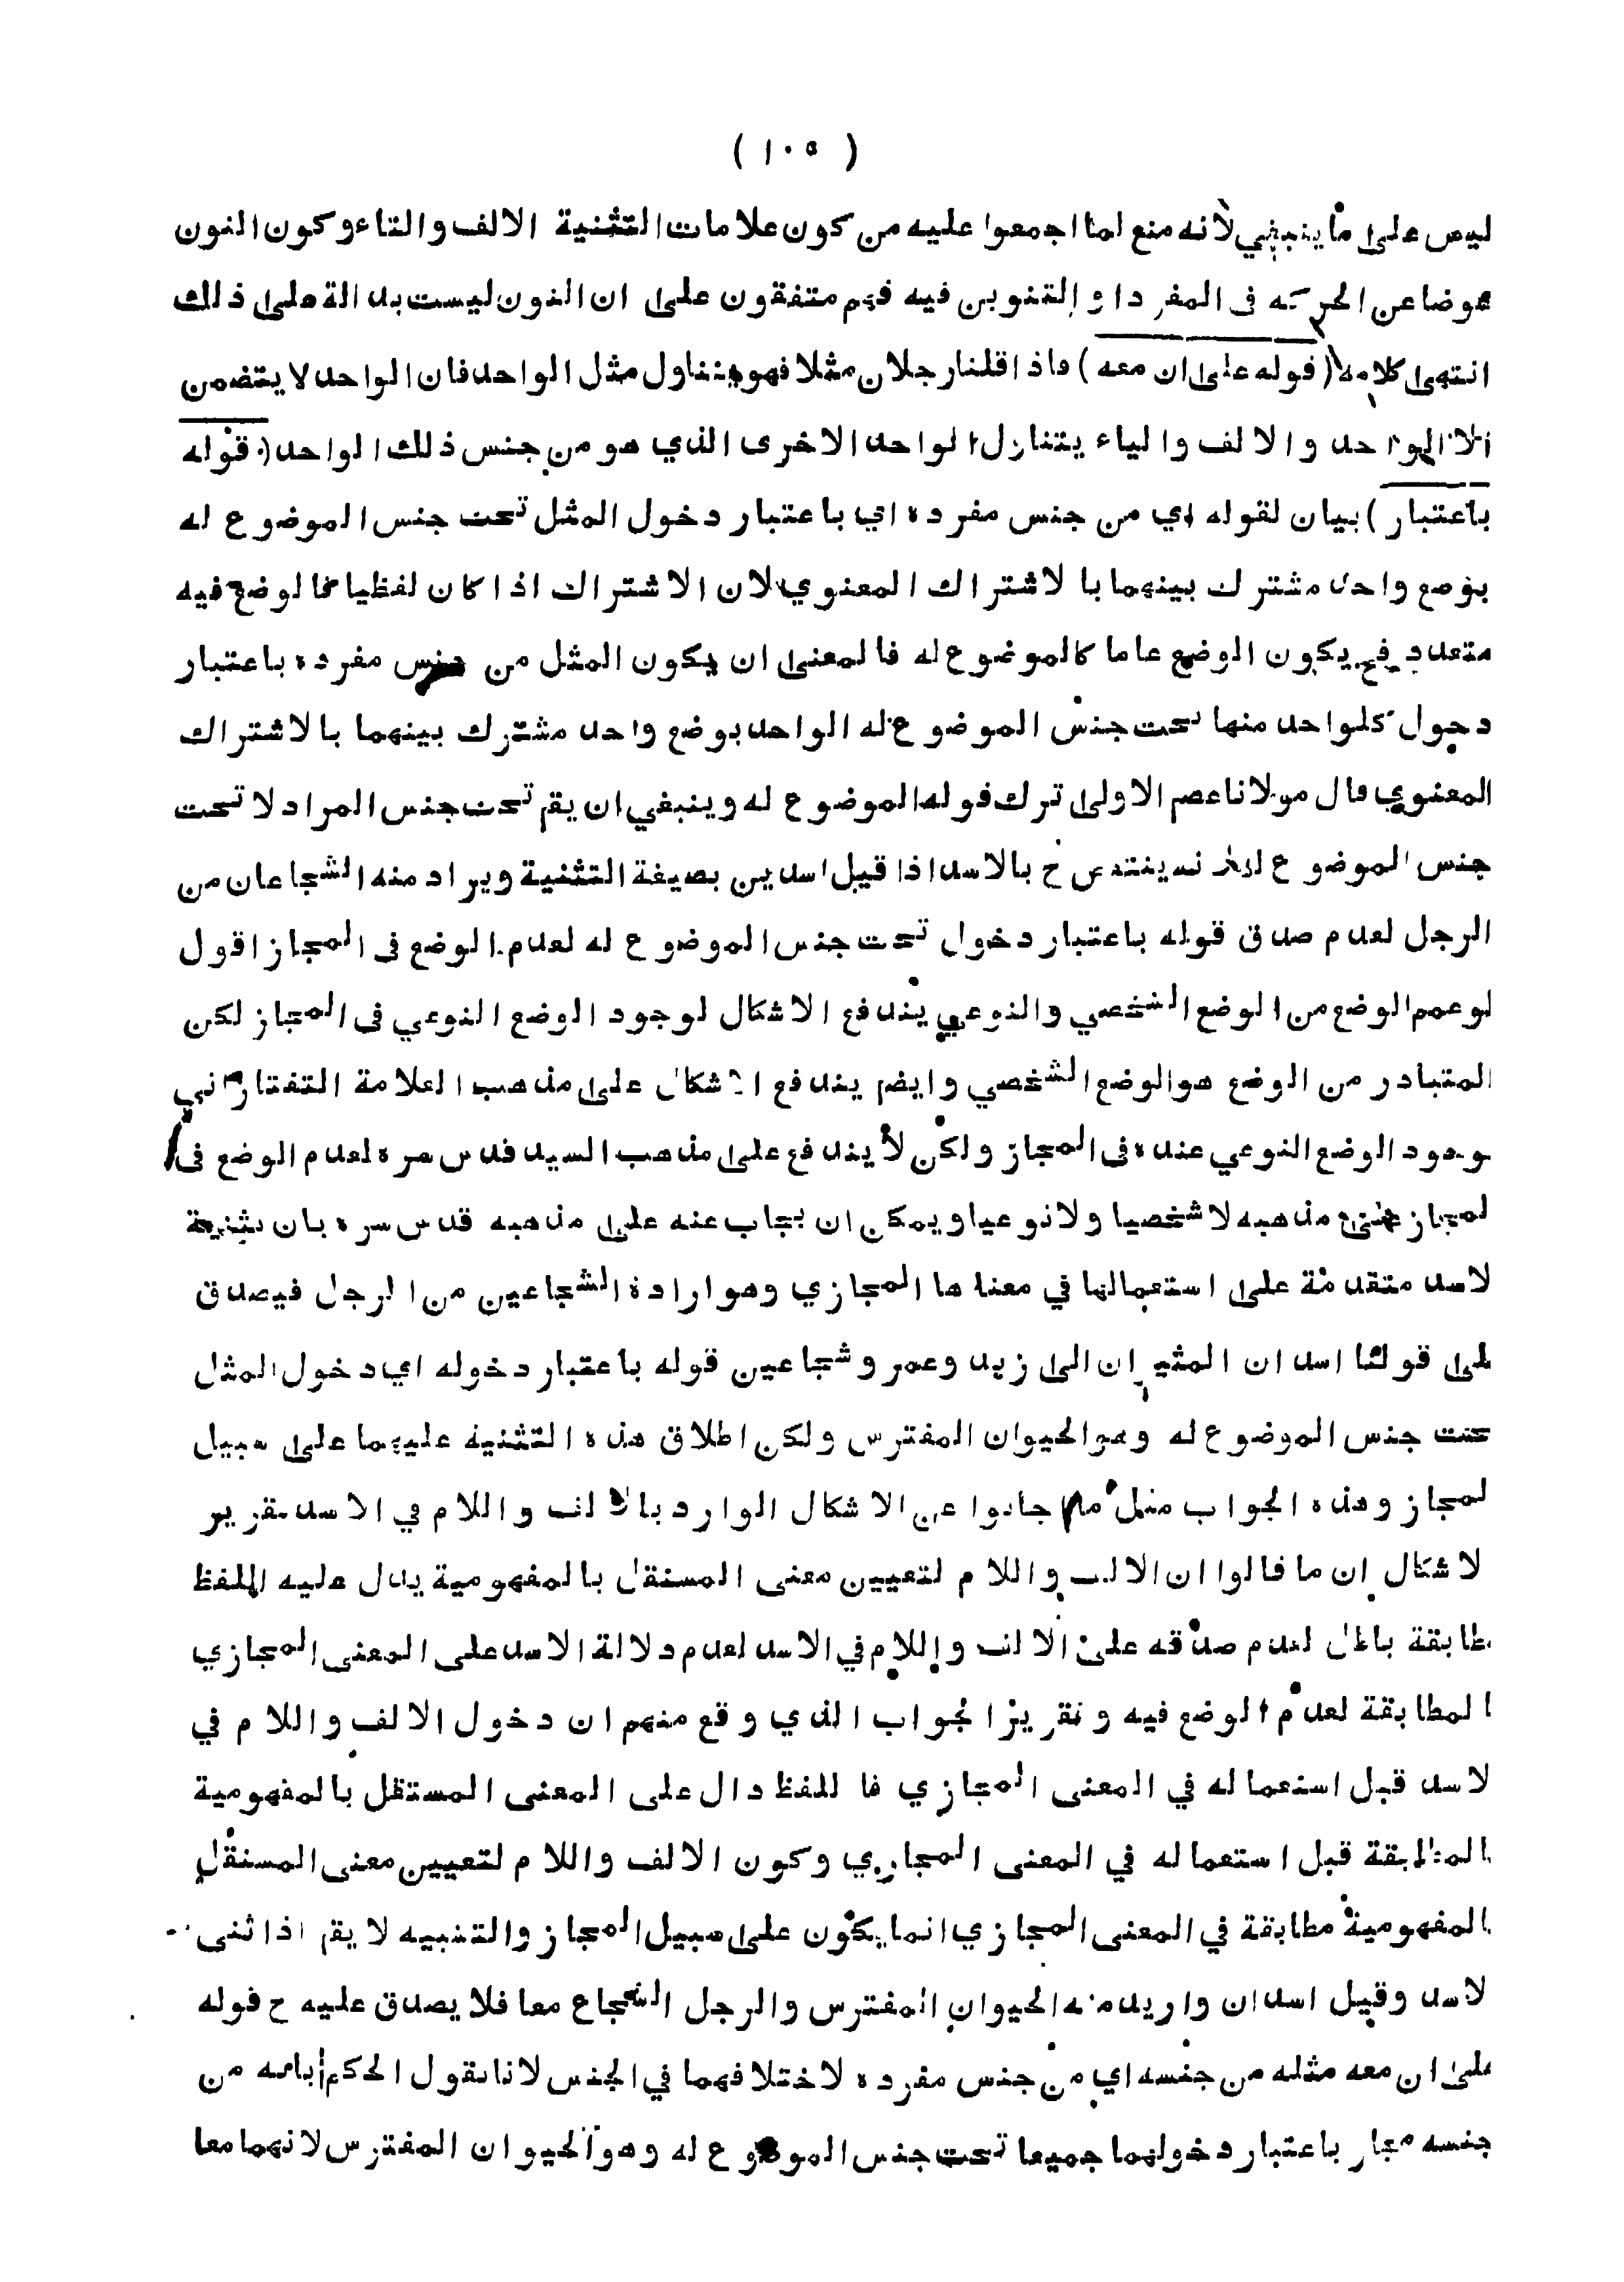 ( ١٠٥ )
ليس على ما ينبغي لأنه منع لما اجمعوا عليه من كون علامات التثنية الالف والتاء وكون النون
عوضا عن الحركه فى المفرد او التنوين فيه فهم متفقون على ان النون ليست بدالة على ذلك
انتهى كلامه (قوله على ان معه) فاذا قلنا رجلان مثلا فهو يتناول مثل الواحد فان الواحد لا يتضمن
الا الواحد والالف والياء يتناول الواحد الاخرى الذي هو من جنس ذلك الواحد (قوله
باعتبار) بيان لقوله اي من جنس مفرده اي باعتبار دخول المثل تحت جنس الموضوع له
بوضع واحد مشترك بينهما بالاشتراك المعنوي لان الاشتراك اذا كان لفظيا فالوضع فيه
متعدد فح يكون الوضع عاما كالموضوع له فالمعنى ان يكون المثل من جنس مفرده باعتبار
دخول كلواحد منها تحت جنس الموضوع له الواحد بوضع واحد مشترك بينهما بالاشتراك
المعنوي قال مولانا عصم الاولى ترك قوله الموضوع له وينبغي ان يقم تحت جنس المراد لا تحت
جنس الموضوع له لانه ينتقض ح بالاسد اذا قيل اسدين بصيغة التثنية ويراد منه الشجاعان من
الرجل لعدم صدق قوله باعتبار دخول تحت جنس الموضوع له لعدم الوضع فى المجاز اقول
لو عمم الوضع من الوضع الشخصي والنوعي يندفع الاشكال لوجود الوضع النوعي فى المجاز لكن
المتبادر من الوضع هو الوضع الشخصي وايضم يندفع الاشكال على مذهب العلامة التفتازاني
بوجود الوضع النوعي عنده فى المجاز ولكن لا يندفع على مذهب السيد قدس سره لعدم الوضع فى
لمجاز على مذهبه لا شخصيا ولا نوعيا ويمكن ان يجاب عنه على مذهبه قدس سره بان تثنية
لاسد متقدمة على استعمالها في معناها المجازي وهو ارادة الشجاعين من الرجل فيصدق
على قولنا اسدان المشيران الى زيد وعمر وشجاعين قوله باعتبار دخوله اي دخول المثل
تحت جنس الموضوع له وهو الحيوان المفترس ولكن اطلاق هذه التثنية عليهما على سبيل
لمجاز وهذه الجواب مثل ما اجابوا عن الاشكال الوارد بالالف واللام في الاسد تقرير
لاشكال ان ما قالوا ان الالف واللام لتعيين معنى المستقل بالمفهومية يدل عليه اللفظ
طابقة باطل لعدم صدقه على الالف واللام في الاسد لعدم دلالة الاسد على المعنى المجازي
المطابقة لعدم الوضع فيه وتقرير الجواب الذي وقع منهم ان دخول الالف واللام في
لاسد قبل استعماله في المعنى المجازي فا للفظ دال على المعنى المستقل بالمفهومية
المطابقة قبل استعماله في المعنى المجازي وكون الالف واللام لتعيين معنى المستقل
المفهومية مطابقة في المعنى المجازي انما يكون على سبيل المجاز والتنبيه لا يقم اذا ثنى
لاسد وقيل اسدان واريد منه الحيوان المفترس والرجل الشجاع معا فلا يصدق عليه ح قوله
على ان معه مثله من جنسه اي من جنس مفرده لاختلافهما في الجنس لانا نقول الحكم بانه من
جنسه مجاز باعتبار دخولهما جميعا تحت جنس الموضوع له وهو الحيوان المفترس لانهما معا